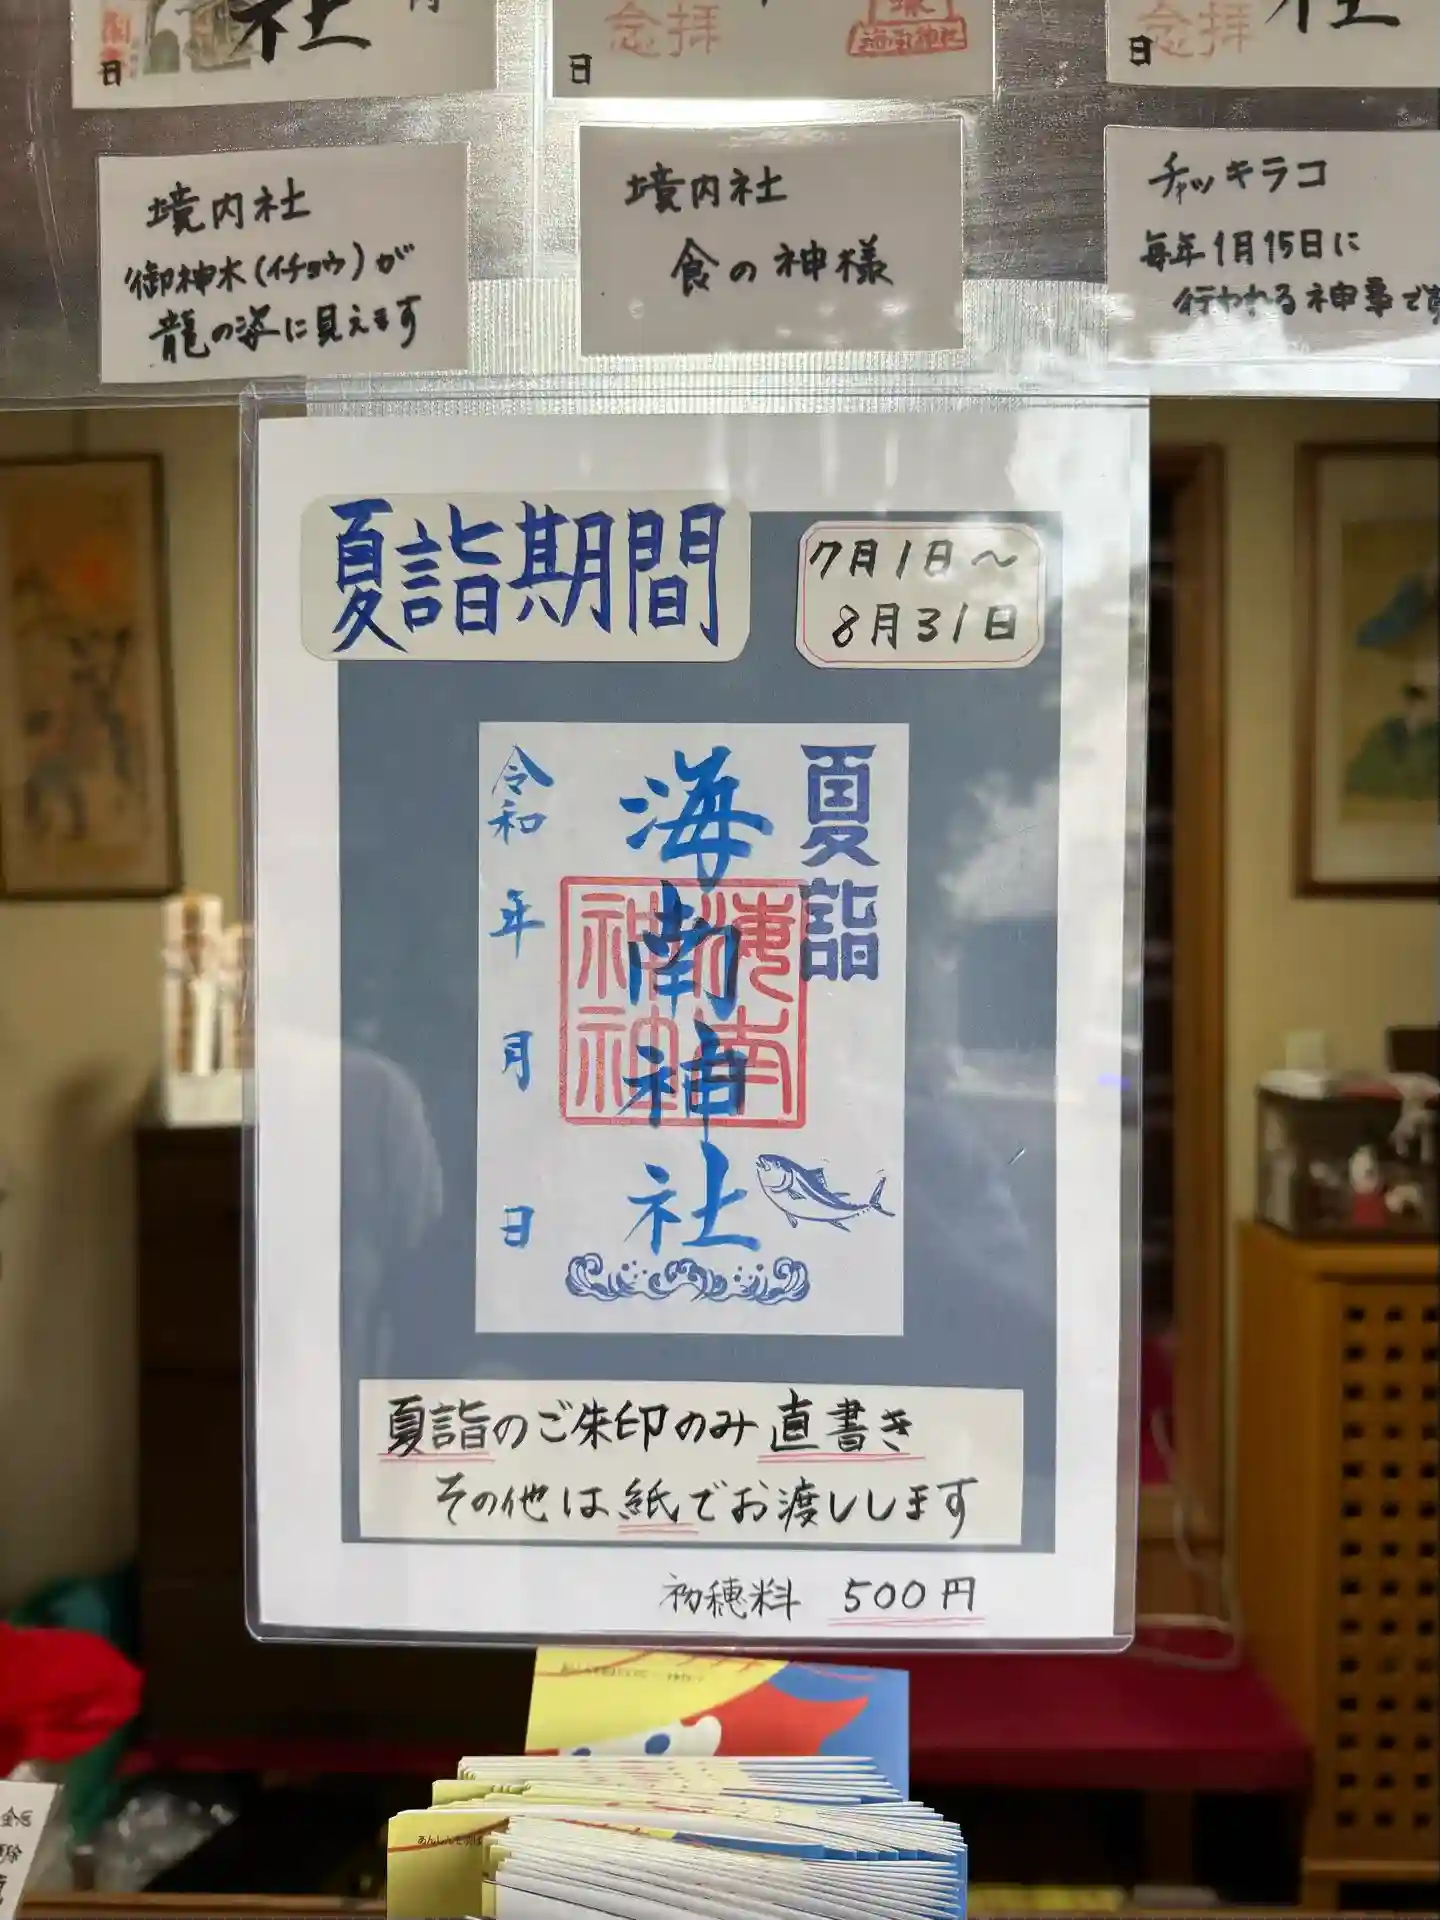 日
社
月
念拝
海南神社
日
念拝
社
日
境内社
御神木(イチョウ)が
龍の姿に見えます
境内社
食の神様
チャッキラコ
毎年1月15日に
行われる神事です
夏詣期間
7月1日〜
8月31日
夏詣
海南神社
海南
神社
令和 年 月 日
夏詣のご朱印のみ直書き
その他は紙でお渡しします
初穂料 500円